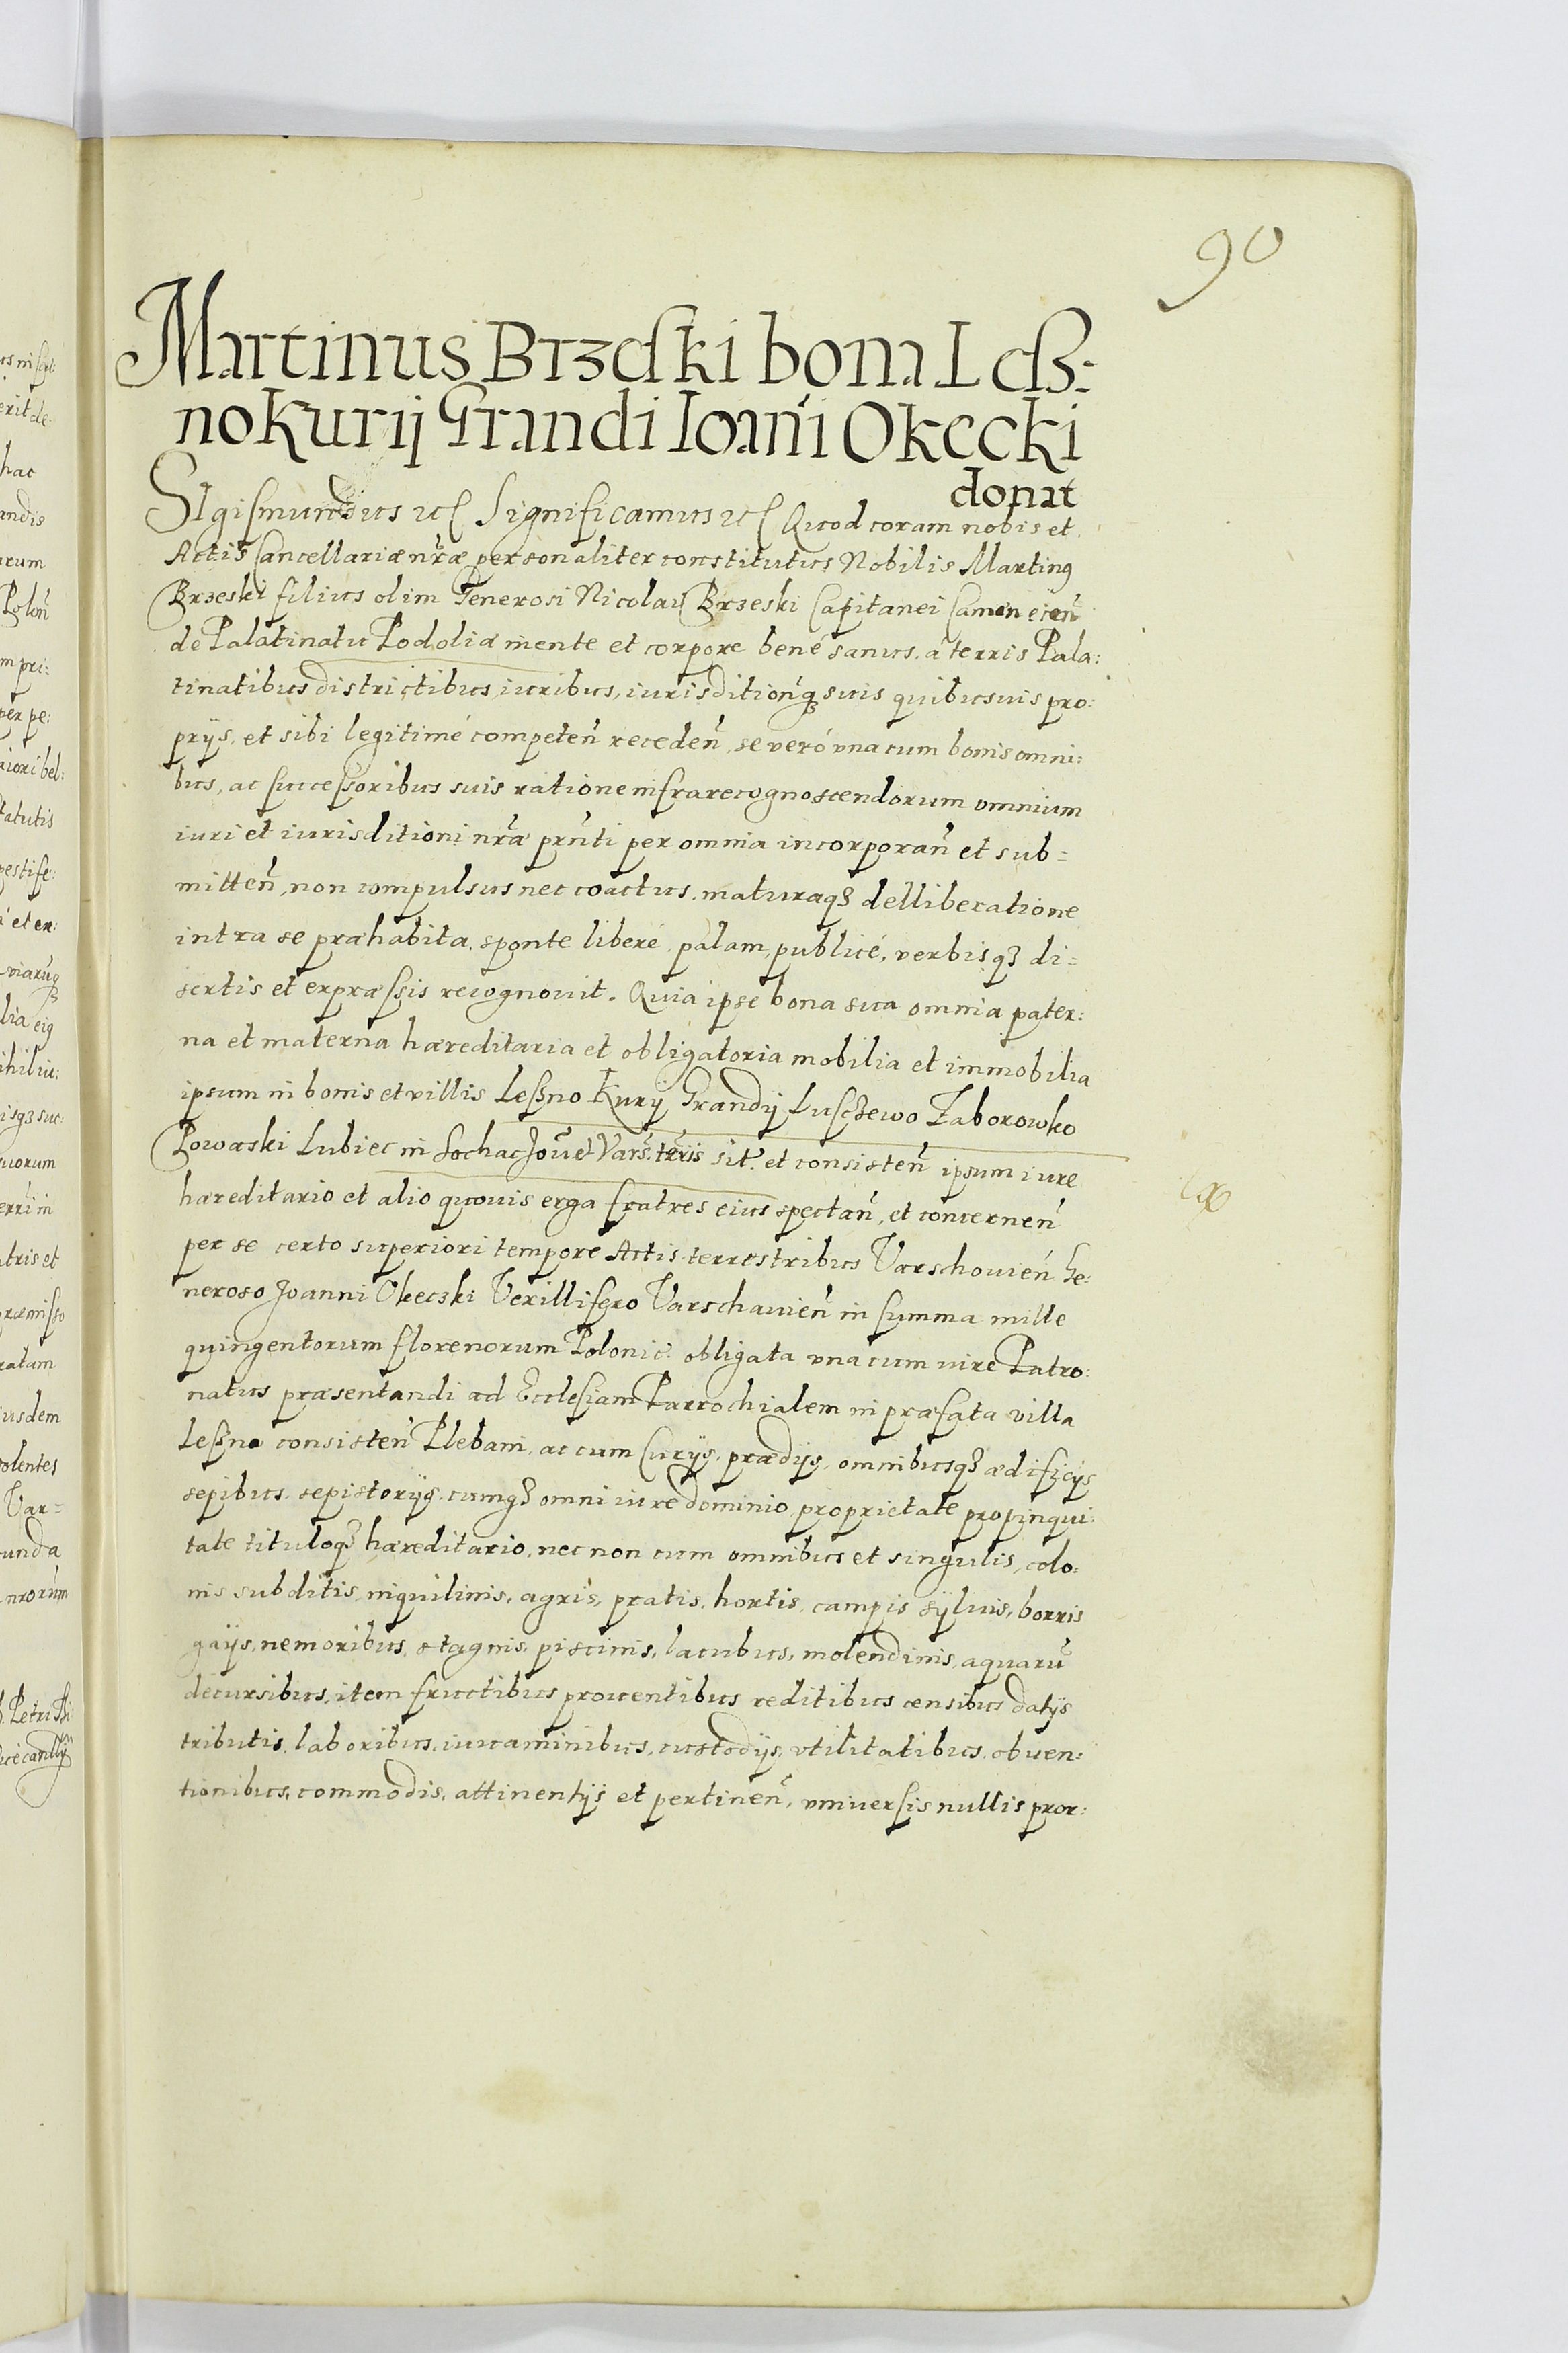 90
Martinus Brzeski bona Leß:
no Kurij Grandi Ioan̄i Okecki
donat
SIgismundus etc Significamus etc Quod coram nobis et
Actis Cancellariæ nr̃æ personaliter constitutus Nobilis Martinus
Brzeski filius olim Generosi Nicolai Brzeski Capitanei Camenecen̄
de Palatinatu Podoliæ mente et corpore bené sanus, a terris Pala:
tinatibus districtibus, iuribus, iurisdition̄q3 suis quibusuis pro:
prijs, et sibi legitimé competen̄ receden̄, se veró vna cum bonis omni:
bus, ac successoribus suis ratione infrarecognoscendorum omnium
iuri et iurisditioni nr̃æ prñti per omnia incorporan̄ et sub=
mitten̄, non compulsus nec coactus, maturaq3 delliberatione
intra se præhabita, sponte liberé, palam, publicé, verbisq3 di=
sertis et expræssis recognouit. Quia ipse bona sua omnia pater:
na et materna hæreditaria et obligatoria mobilia et immobilia
ipsum in bonis et villis Leßno Kurij Grandij Lusczewo Zaborowko
Powaski Lubiec in Sochac̃ Joũe et Vars: terris sit: et consisten̄ ipsum iure
hæreditario et alio quouis erga fratres eius spectan̄, et concernen̄
per se certo superiori tempore Actis terrestribus Varschouien̄ Ge:
neroso Joanni Okecski Vexillifero Varschauien̄ in summa mille
quingentorum florenorum Polonic: obligata vna cum iure Patro:
natus præsentandi ad Ecclesiam Parrochialem in præfata villa
Leßno consisten̄ Plebani, ac cum Curijs, prædijs, omnibusq3 ædificijs
sepibus, sepistorijs, cumq3 omni iure dominio, proprietate propinqui:
tate tituloq3 hæreditario, nec non cum omnibus et singulis, colo:
nis subditis, inquilinis, agris, pratis, hortis, campis sÿluis, borris
gaijs, nemoribus, stagnis, piscinis, lacubus, molendinis, aquarũ
decursibus, item fructibus prouentibus reditibus censibus datijs
tributis, laboribus, iuuaminibus, custodijs, vtilitatibus, obuen:
tionibus, commodis, attinentijs et pertinen̄, vniuersis nullis pror: